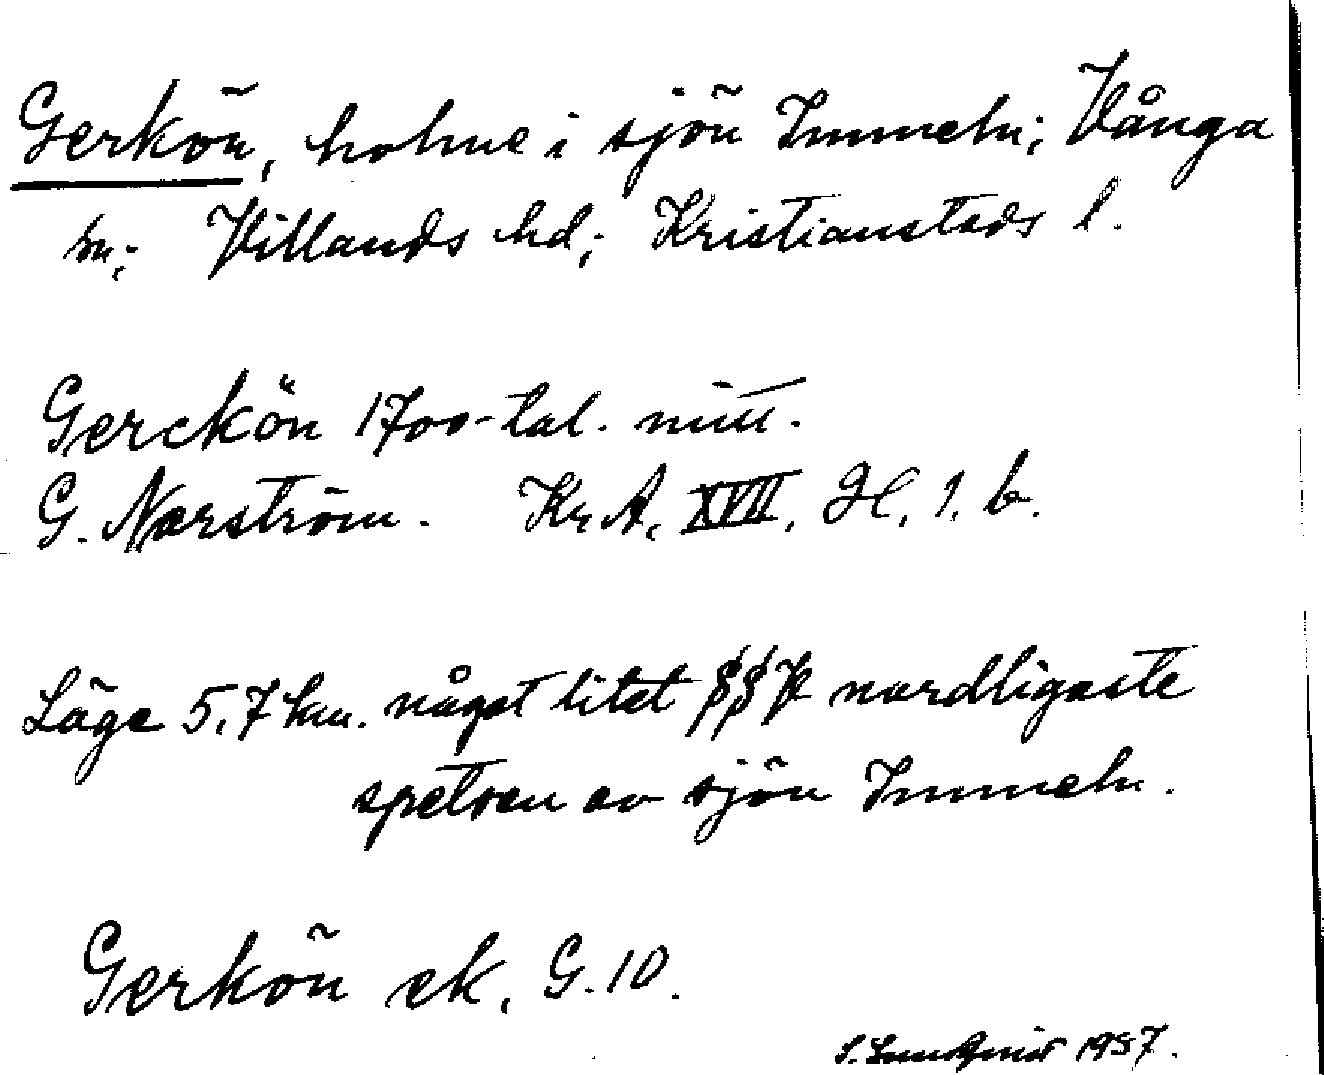 Gerkön, holme i sjön Immeln; Vånga
sn; Villands hd; Kristianstads l.
Gerckön 1700-tal. mitt.
G. Norström. Kr. A. XVII, H, 1, b.
Läge 5,7 km. något litet SSV nordligaste
spetsen av sjön Immeln.
Gerkön ek, G. 10.
S. Lundqvist 1957.